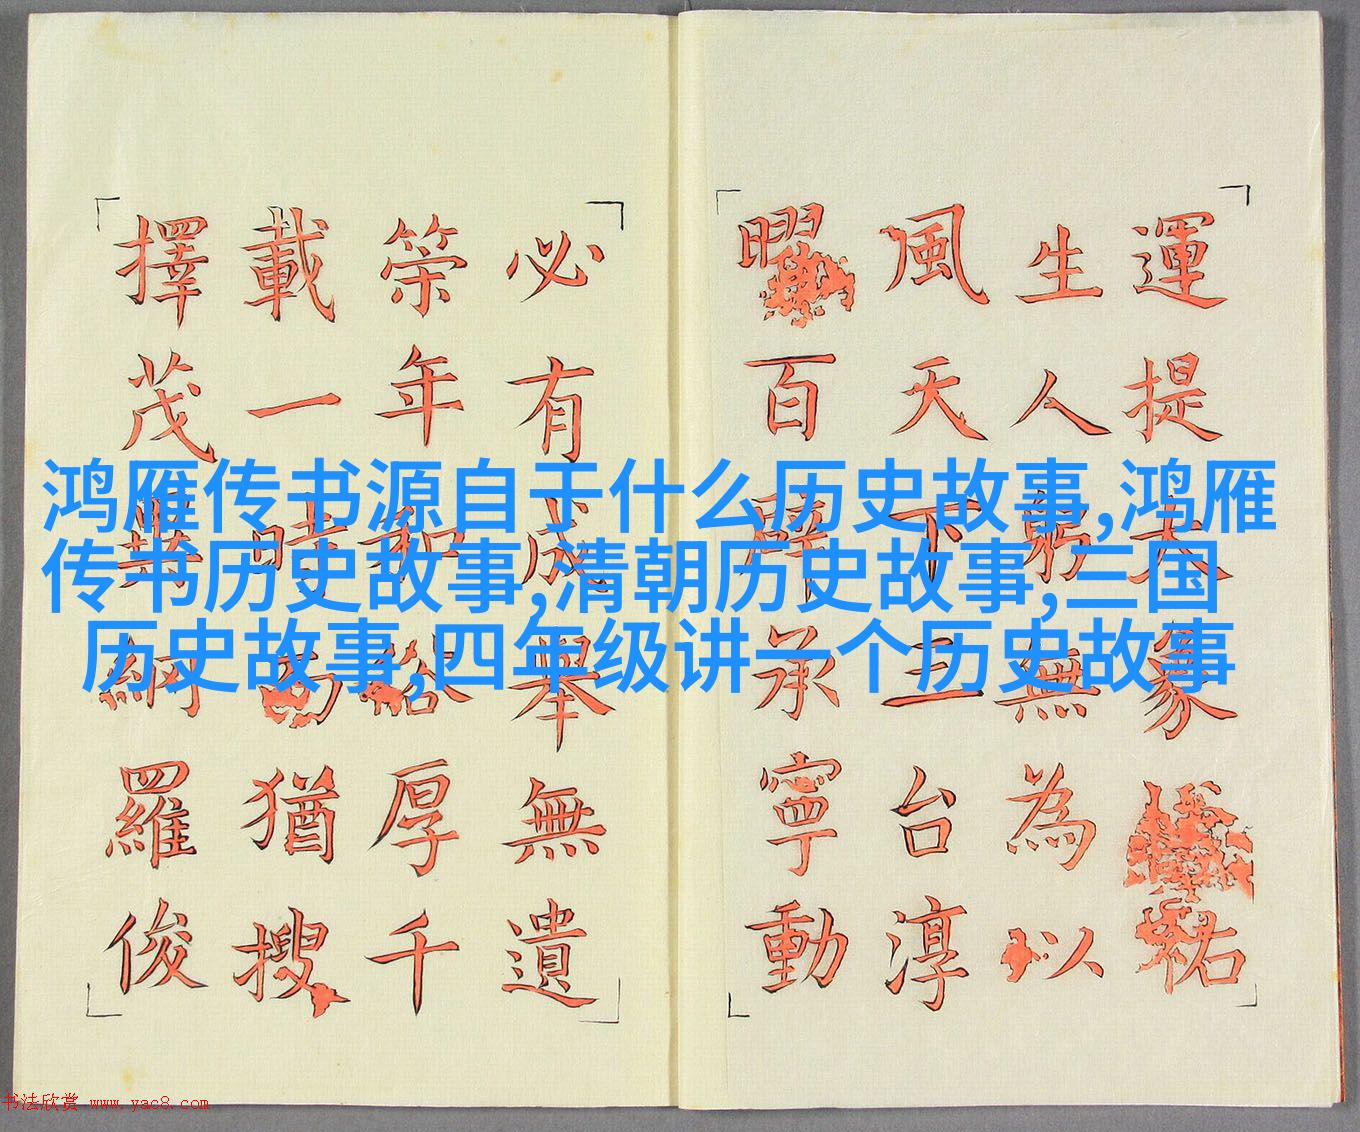 鸿雁传书源自于什么历史故事,鸿雁
传书历史故事,清朝历史故事,三国
历史故事,四年级讲一个历史故事
運提大象祐
生人躬無為以
風天下三台淳
曜百辟承寧動
必有成舉無遺
年和厚千
載一時猶搜
擇茂異網羅俊
书法欣赏 www.yac8.com